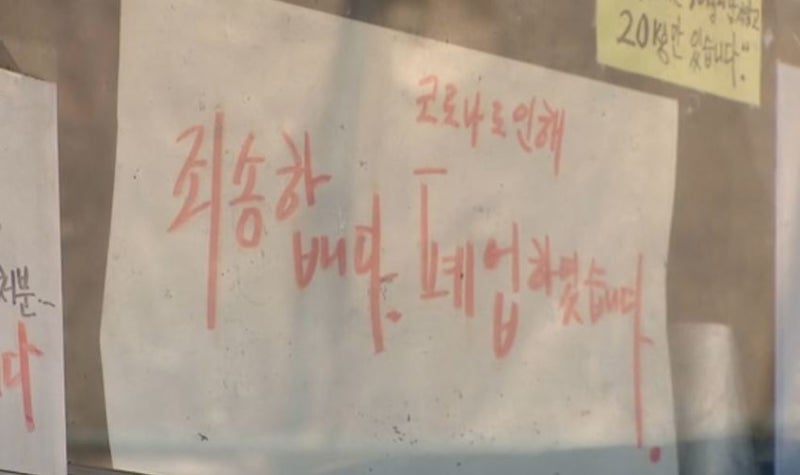 죄송합니다.
코로나로 인해
폐업하였습니다.
20명만 있습니다."
처분...
다